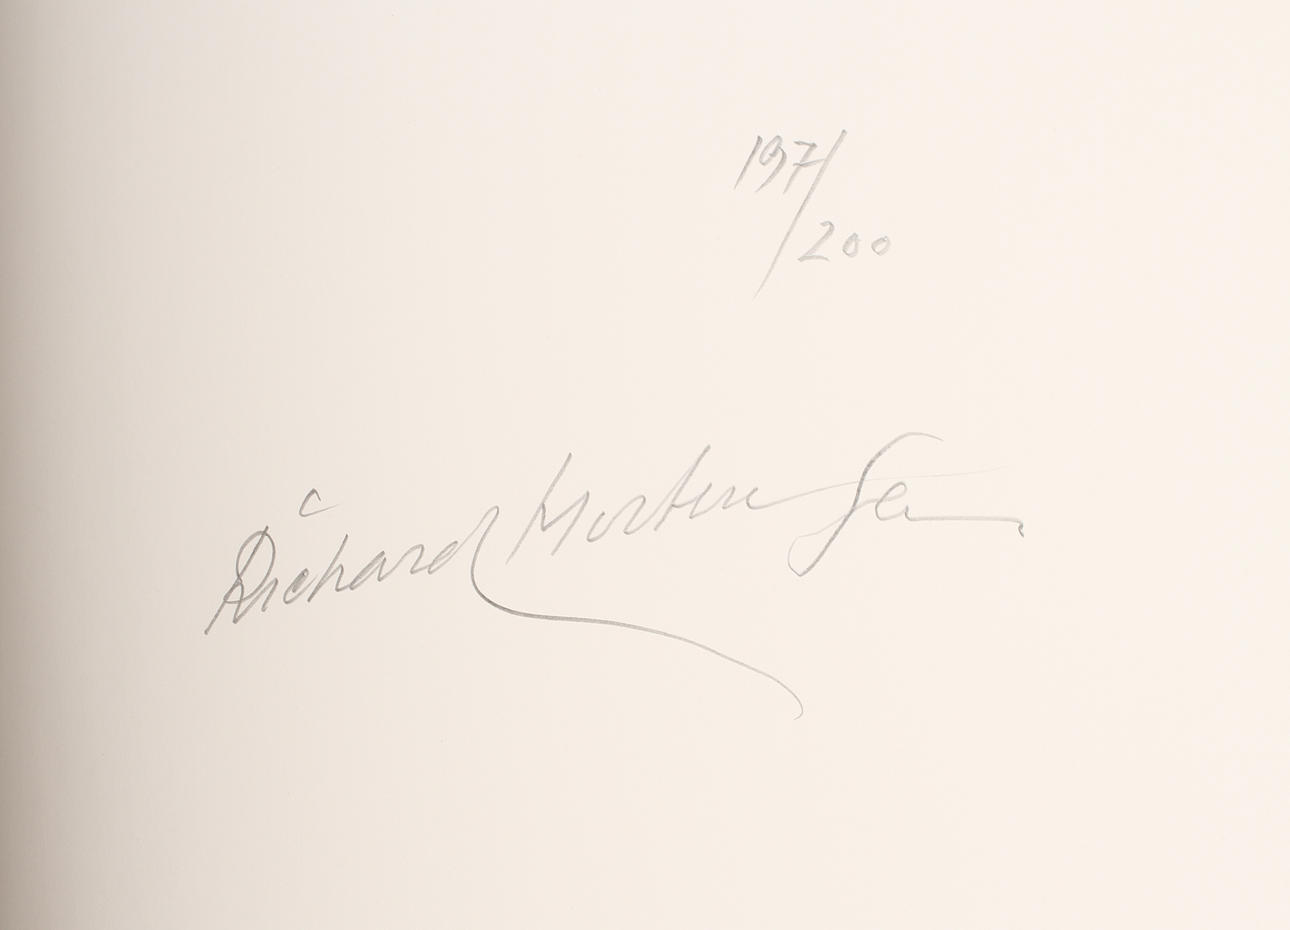 197/
200
Richard Mortensen